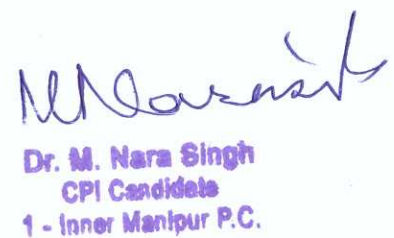 Dr. M. Nara Singh
CPI Candidate
1 - Inner Manipur P.C.